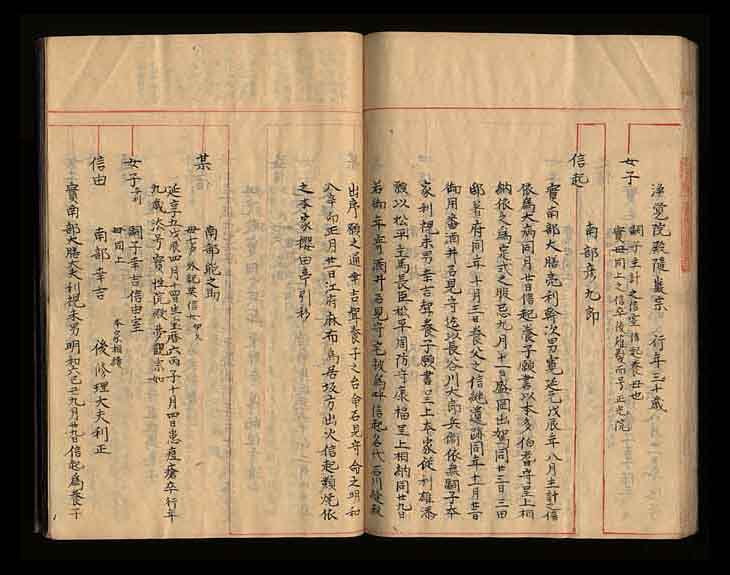 淨覚院殿隨巌宗 行年三十歳
女子
嗣子主計之信室信起養母也
實母同上之信卒後薙髪而号正光院
南部彦九郎
信起
實南部大膳亮利幹次男寛延元戊辰年八月主計之信
依為大病同月廿日信起養子願書以本多伯耆守呈上相
納依之為定式之服忌九月十一日盛岡出駕同廿三日
邸著府同年十月三日養父之信跡遺跡同年十一月廿日
御用番酒井石見守迄以長谷川太郎兵衛依無嗣子本
家利視末男幸吉聲養子願書呈上本家従利雄添
願以松平主馬長臣松平周防守康福呈上相納同廿九日
若御年寄酒井石見守宅被為呼信起名代石川
出序願之通幸吉聲養子之台命石見守命之明和
八辛卯正月廿一日江府麻布為居坂方出火信起類焼依
之本家櫻田亭引移
南部乾之助
某
母
延享五戊辰四月十四日生宝暦六丙子十月四日患痘瘡卒行年
九歳法号實性院殿夢観宗如
女子
嗣子幸吉信由室
母同上
本家相續
南部幸吉 後修理大夫利正
信由
實南部大膳大夫利視末男明和六己丑九月廿九日信起為養子